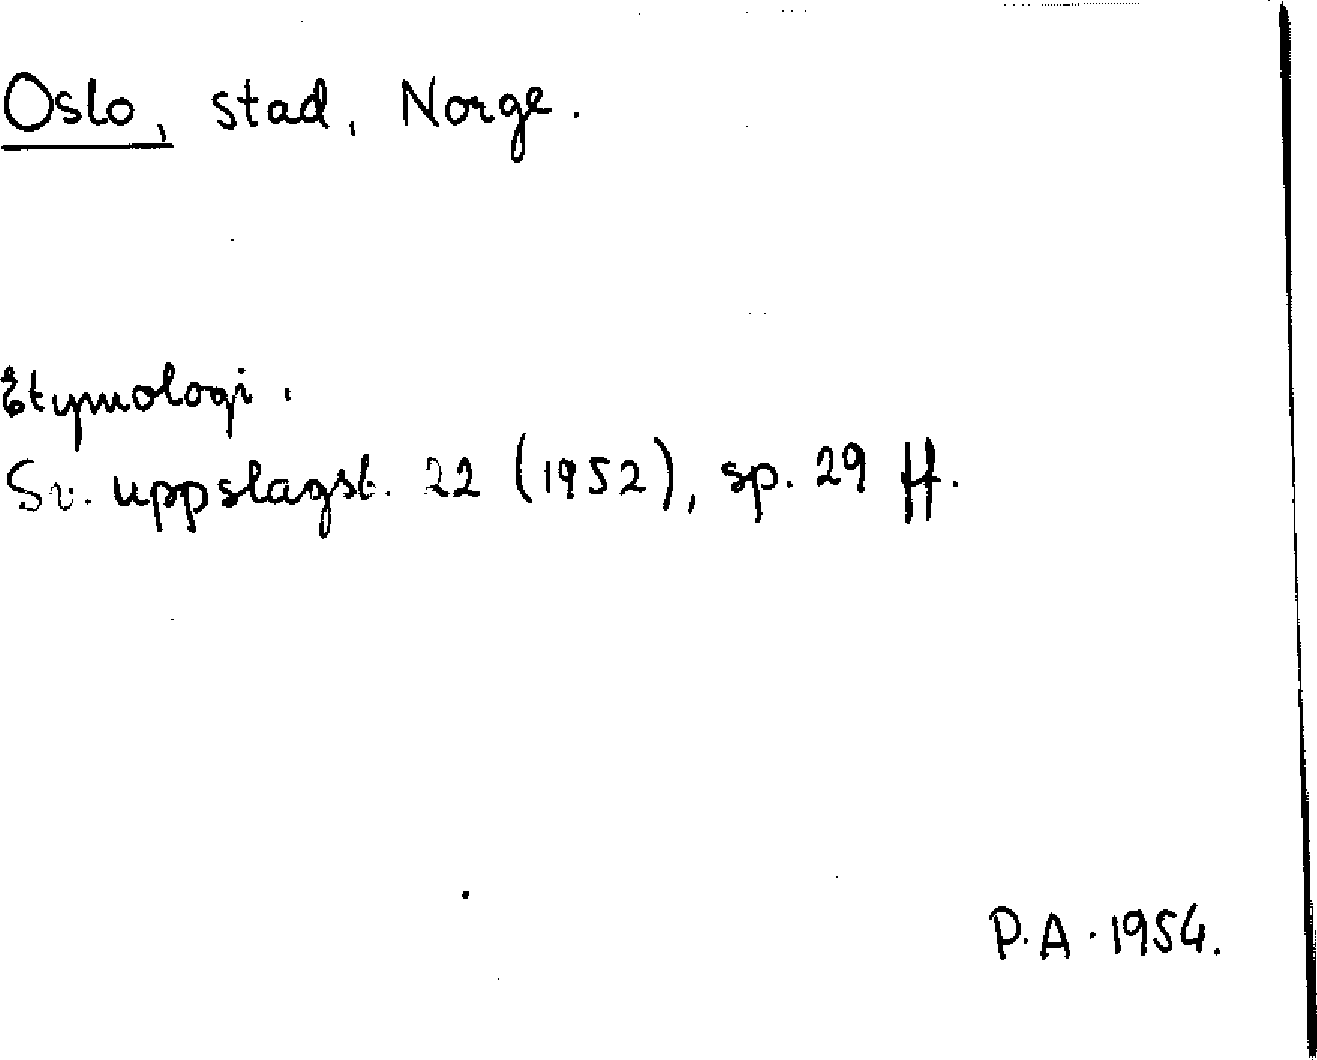 Oslo, stad, Norge.
Etymologi.
Sv. uppslagsb. 22 (1952), sp. 29 ff.
P.A. 1954.